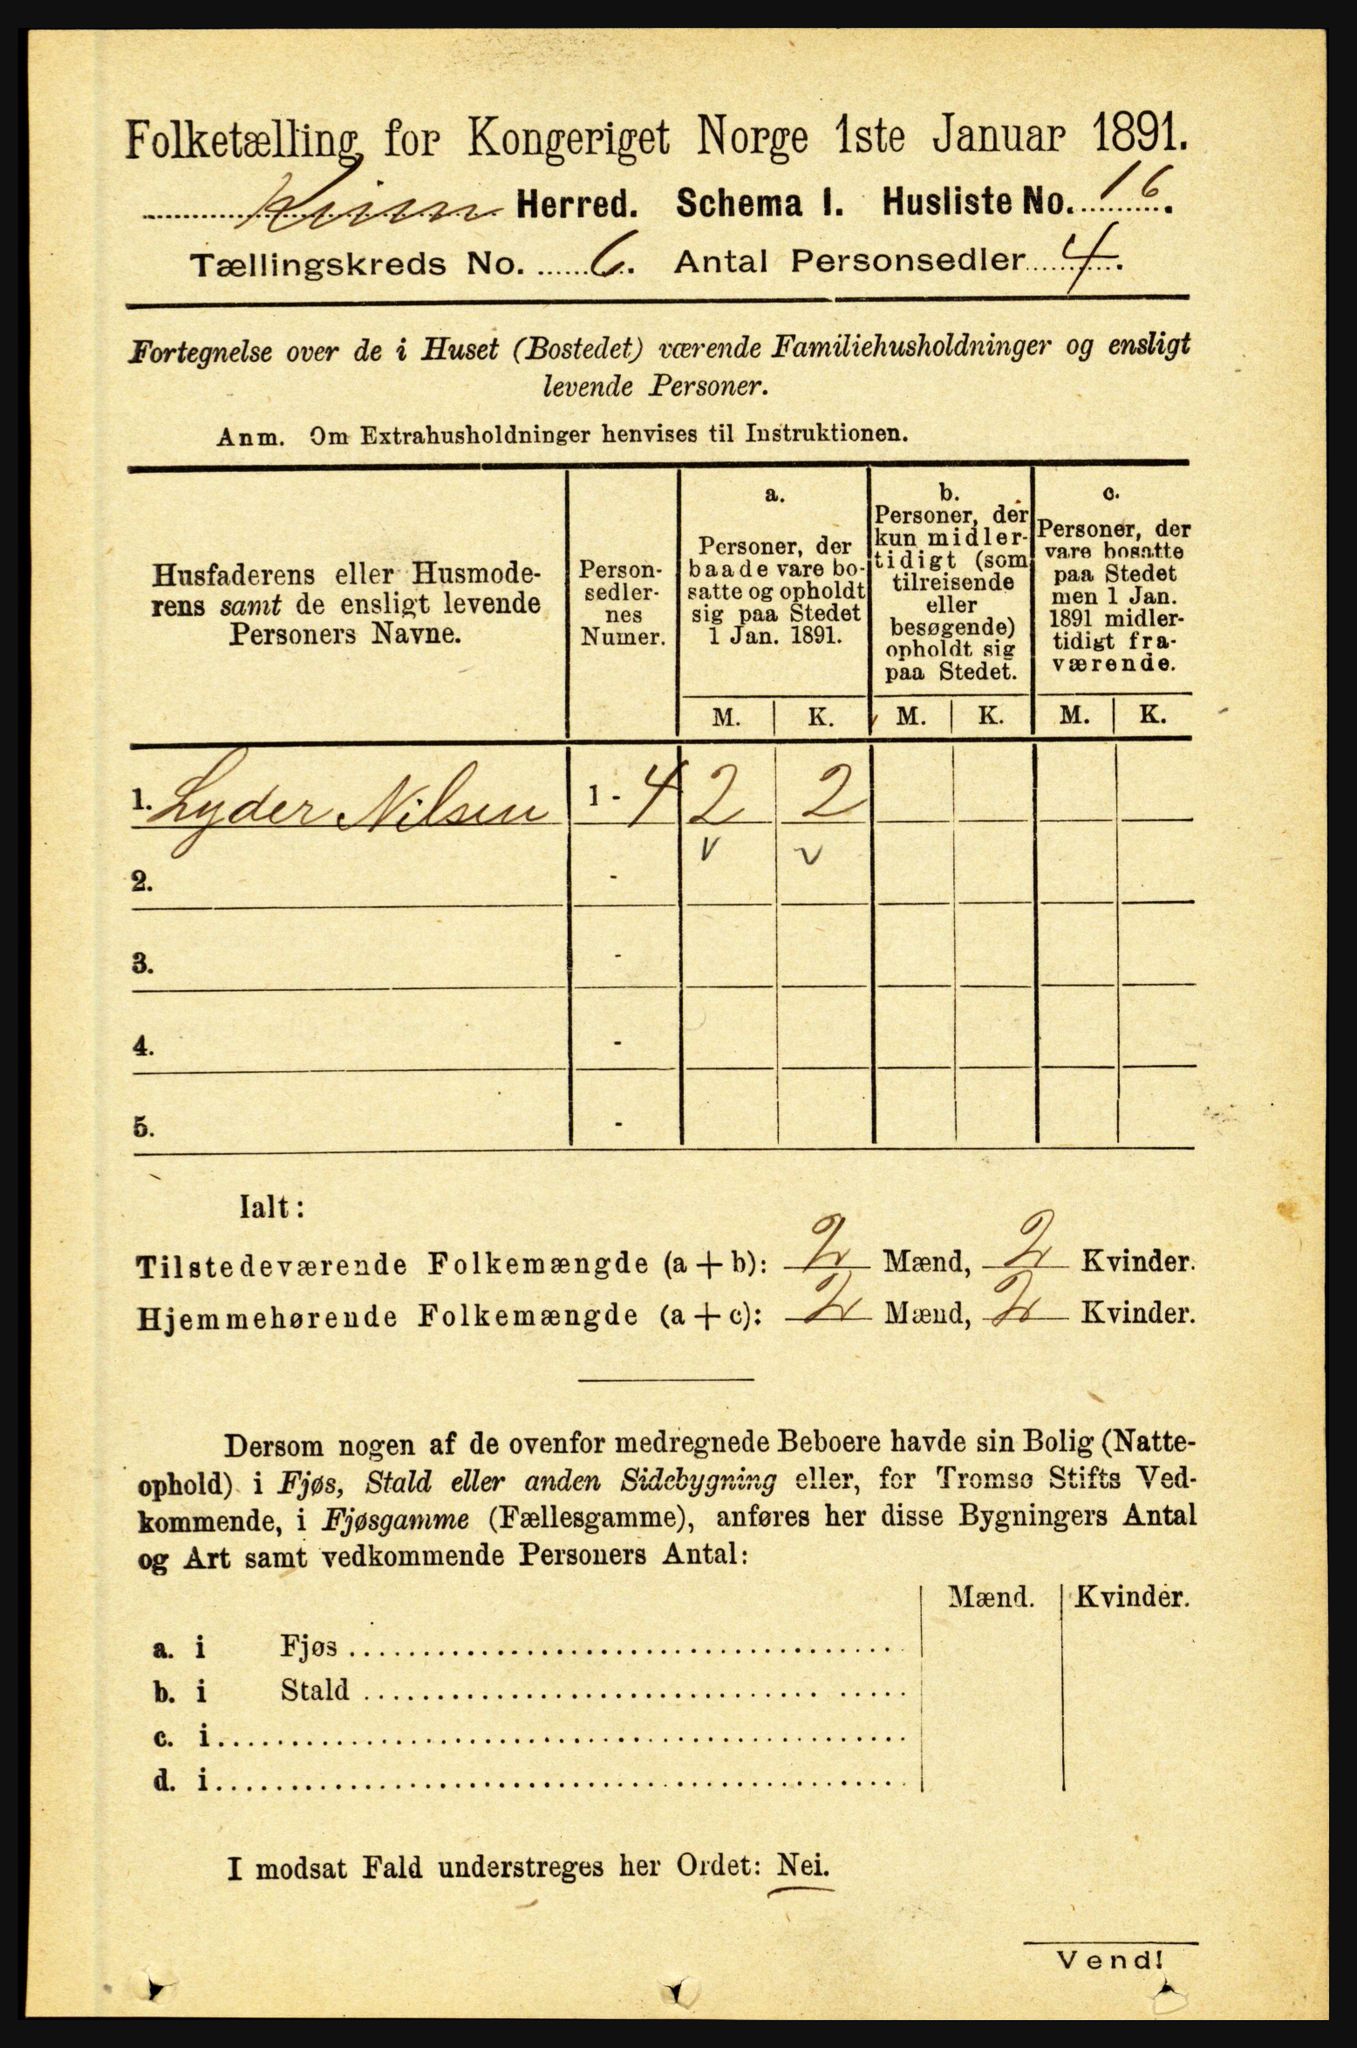 Folketælling for Kongeriget Norge 1ste Januar 1891.
Kinn Herred. Schema I. Husliste No. 16.
Tællingskreds No. 6. Antal Personsedler 4.
Fortegnelse over de i Huset (Bostedet) værende Familiehusholdninger og ensligt
levende Personer.
Anm. Om Extrahusholdninger henvises til Instruktionen.
Husfaderens eller Husmode-
rens samt de ensligt levende
Personers Navne.
Person-
sedler-
nes
Numer.
a.
Personer, der
baade vare bo-
satte og opholdt
sig paa Stedet
1 Jan. 1891.
b.
Personer, der
kun midler-
tidigt (som
tilreisende
eller
besøgende)
opholdt sig
paa Stedet.
c.
Personer, der
vare bosatte
paa Stedet
men 1 Jan.
1891 midler-
tidigt fra-
værende.
M. K. M. K. M. K.
1. Lyder Nilsen 1 - 4 2 2
v v
2. -
3. -
4. -
5. -
Ialt:
Tilstedeværende Folkemængde (a + b): 2 Mænd, 2 Kvinder.
Hjemmehørende Folkemængde (a + c): 2 Mænd, 2 Kvinder.
Dersom nogen af de ovenfor medregnede Beboere havde sin Bolig (Natte-
ophold) i Fjøs, Stald eller anden Sidebygning eller, for Tromsø Stifts Ved-
kommende, i Fjøsgamme (Fællesgamme), anføres her disse Bygningers Antal
og Art samt vedkommende Personers Antal:
Mænd. Kvinder.
a. i Fjøs
b. i Stald
c. i
d. i
I modsat Fald understreges her Ordet: Nei.
Vend!